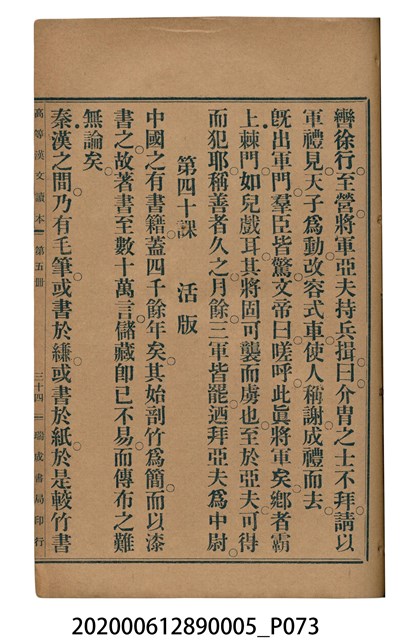 轡徐行。至營。將軍亞夫持兵揖曰。介胄之士不拜。請以
軍禮見。天子爲動。改容式車。使人稱謝。成禮而去。
旣出軍門。羣臣皆驚。文帝曰。嗟呼。此眞將軍矣。鄉者霸
上棘門。如兒戲耳。其將固可襲而虜也。至於亞夫。可得
而犯耶。稱善者久之。月餘。三軍皆罷。迺拜亞夫爲中尉。
第四十課　活版
中國之有書籍。蓋四千餘年矣。其始剖竹爲簡。而以漆
書之。故著書至數十萬言。儲藏卽已不易。而傳布之難
無論矣。
秦漢之間。乃有毛筆。或書於縑。或書於紙。於是較竹書
高等漢文讀本　第五册　三十四　瑞成書局印行
202000612890005_P073